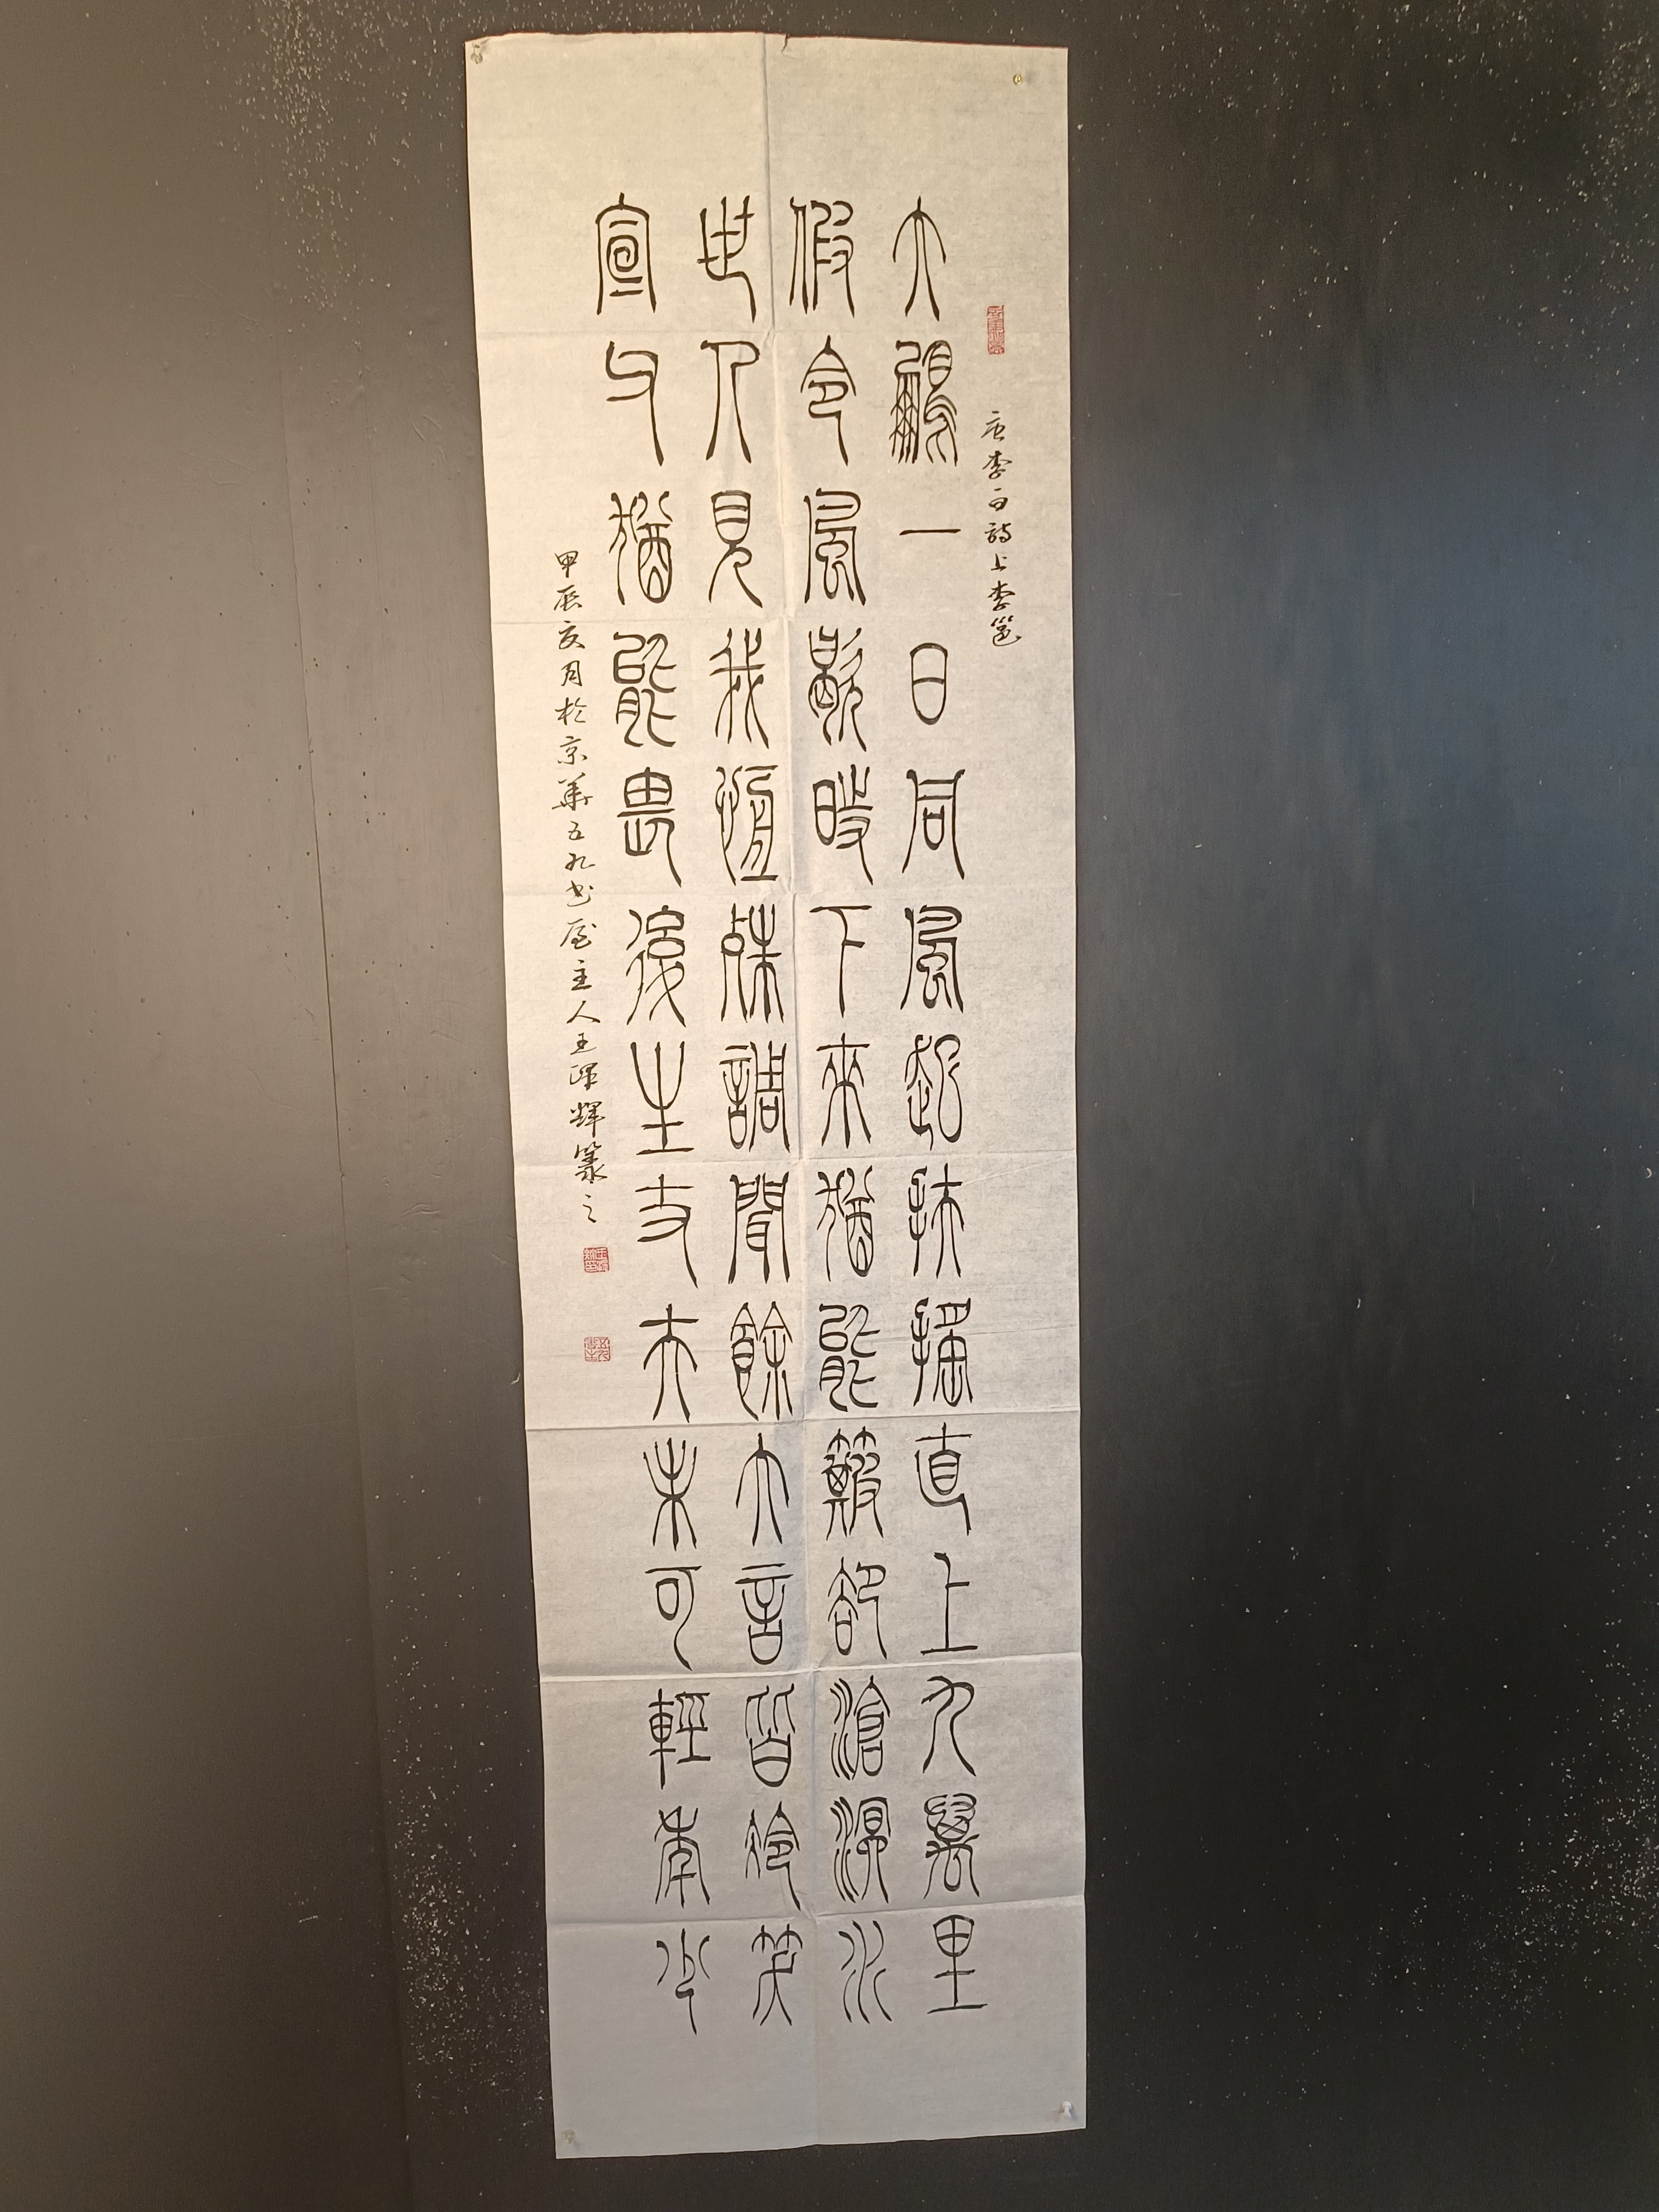 唐李白詩上李邕
大鵬一日同風起扶搖直上九萬里
假令風歇時下來猶能簸卻滄溟水
世人見我恆殊調聞餘大言皆冷笑
宣父猶能畏後生丈夫未可輕年少
甲辰亥月於京華五九書屋主人王輝篆之